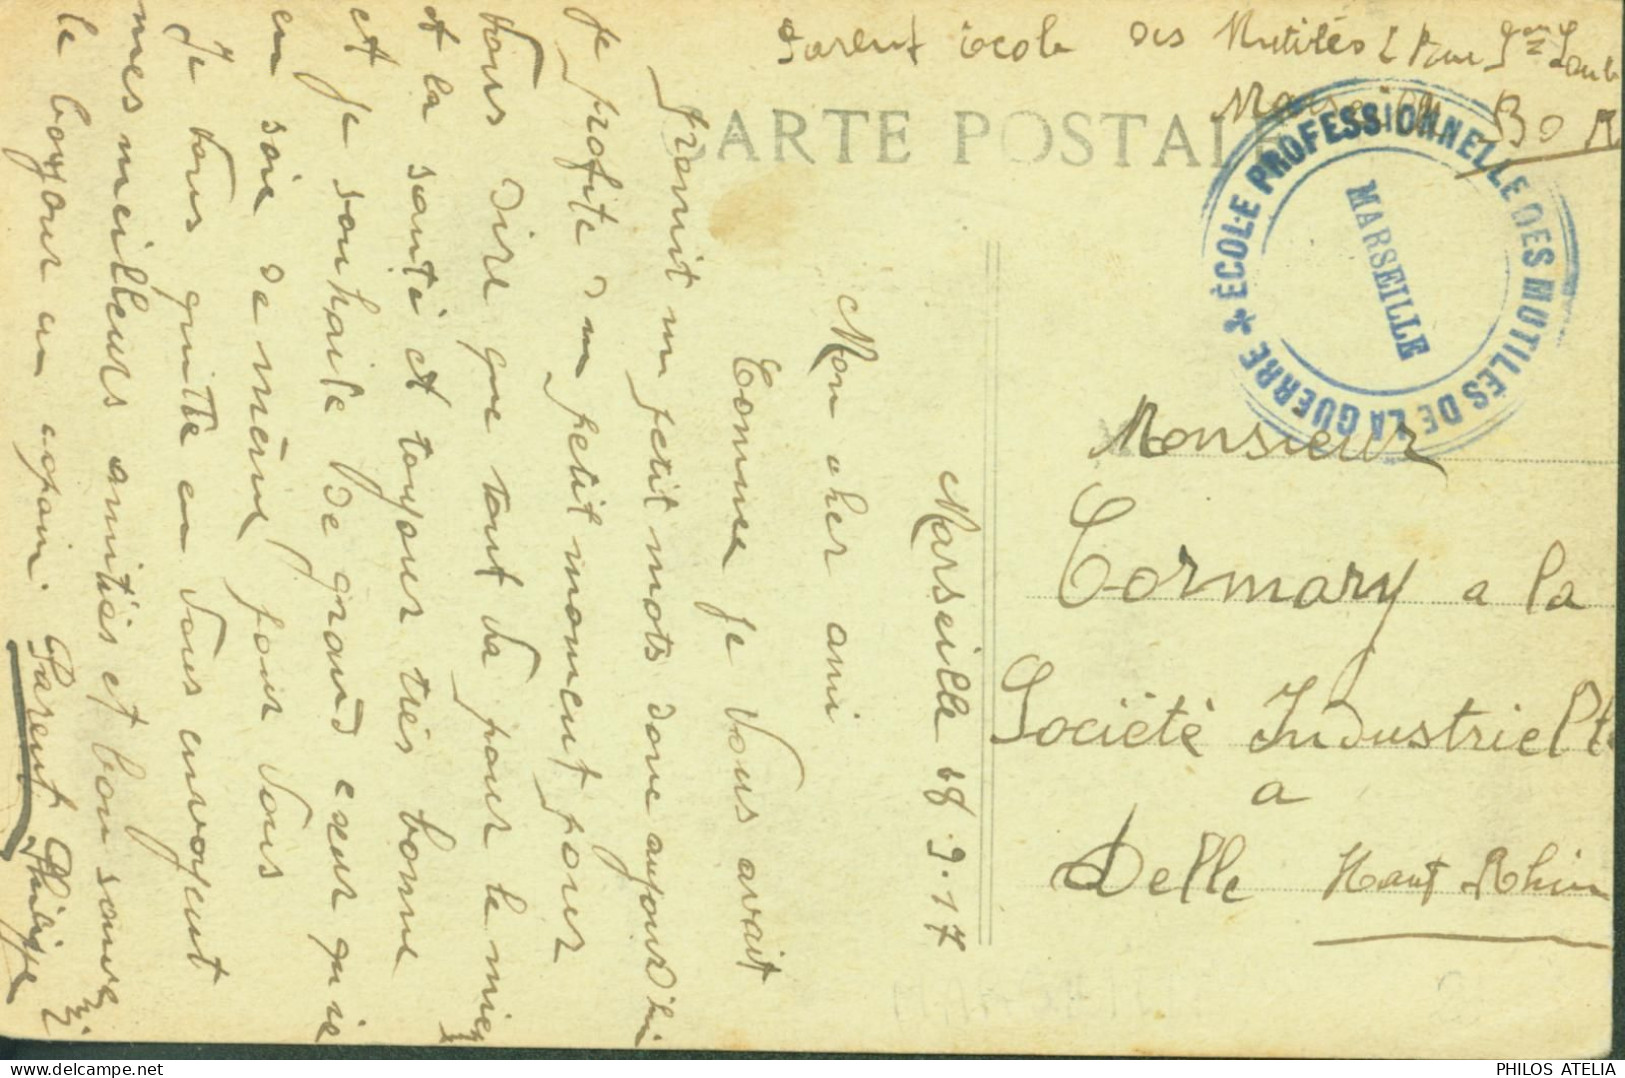 Parent École des Mutilés Rue
Marseille B D R
CARTE POSTALE
ÉCOLE PROFESSIONNELLE DES MUTILÉS DE LA GUERRE
MARSEILLE
Marseille 18.9.17
Mon cher ami
Comme je vous avait
promit un petit mots donc aujourd'hui
je profite d'un petit moment pour
vous dire que tout va pour le mieux
et la santé et toujour très bonne
et je souhaite de grand cœur qu'il
en soie de même pour vous
Je vous quitte en vous envoyent
mes meilleurs amitiés et bon souvenir
le bonjour au copain. Parent Philippe
Monsieur
Cormary a la
Société Industrielle
a
Delle Haut Rhin
PHILOS ATELIA